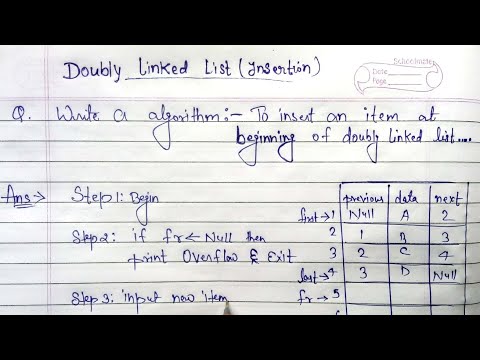 Schoolmate
Doubly Linked List (Insertion)
Date
Page
Q. Write a algorithm:- To insert an item at
beginning of doubly linked list....
Ans → Step1: Begin
Step2: if fr ← Null then
print Overflow & Exit
Step 3: input new item
previous data next
first→1 Null A 2
2 1 B 3
3 2 C 4
last→4 3 D Null
fr → 5